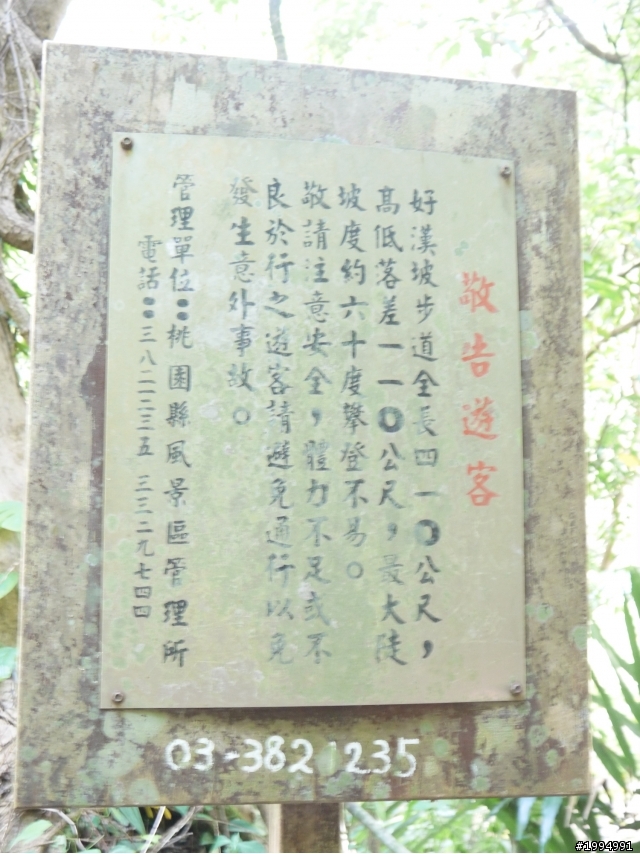 敬告遊客
好漢坡步道全長四一０公尺，
高低落差一一０公尺，最大陡
坡度約六十度攀登不易。
敬請注意安全，體力不足或不
良於行之遊客請避免通行以免
發生意外事故。
管理單位：桃園縣風景區管理所
電話：三八二一二三五 三三二九七四四
03-3821235
#1994991